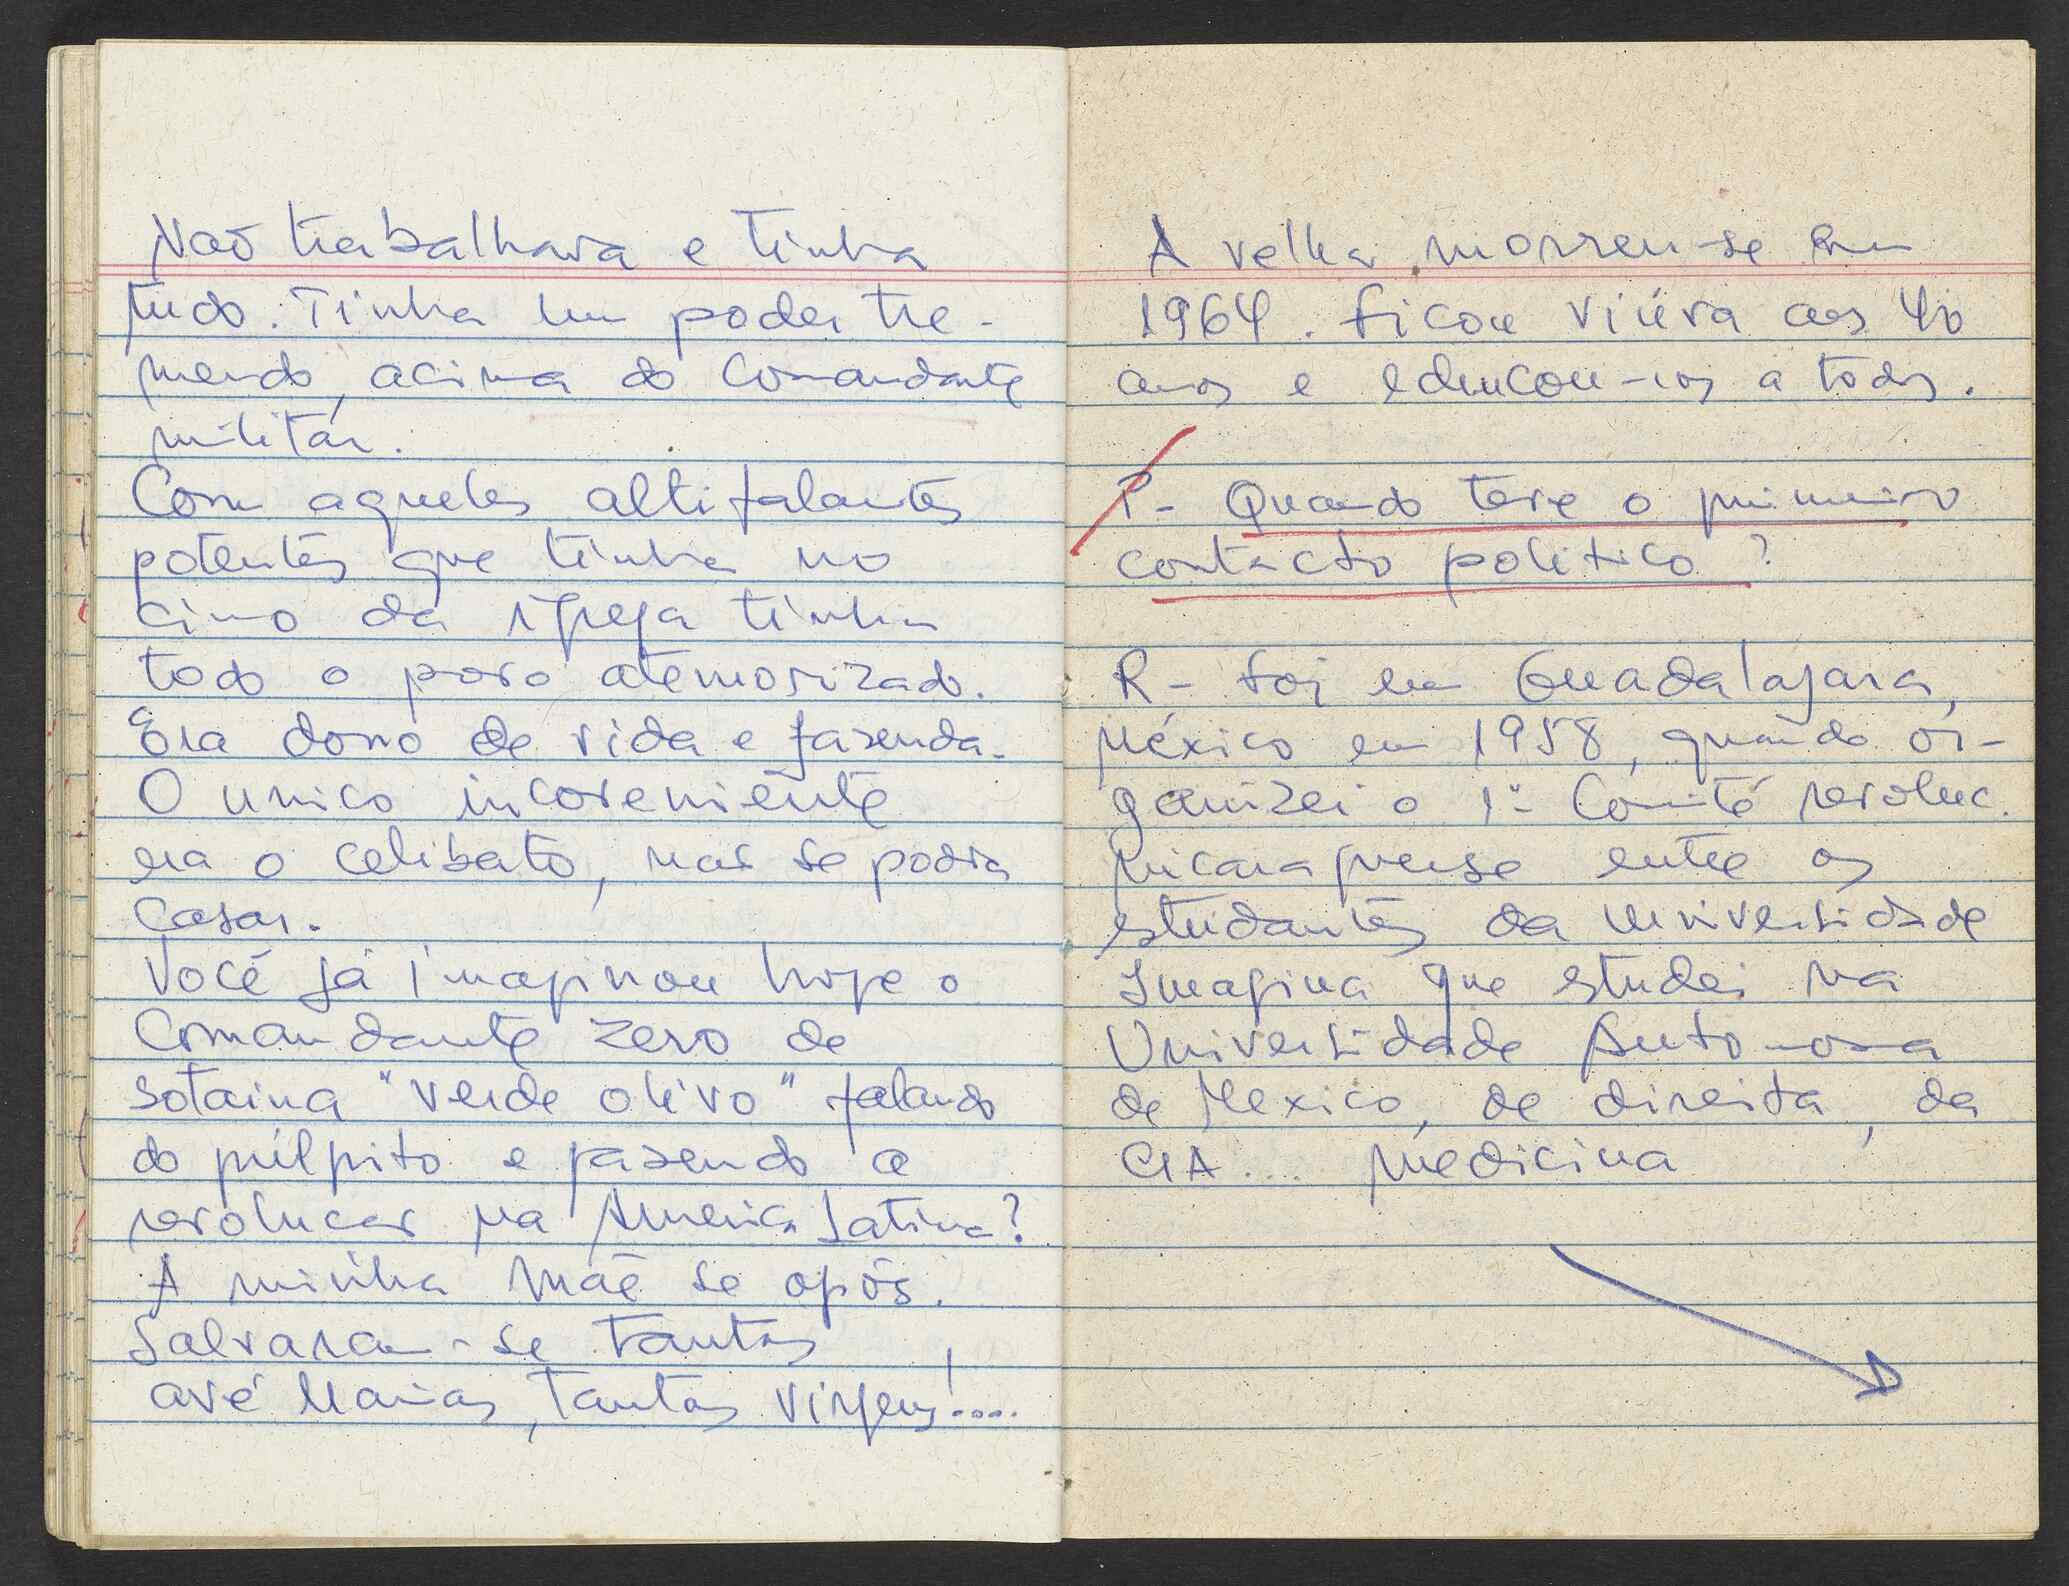 Não trabalhava e tinha
tudo. Tinha um poder tre-
mendo, acima do Comandante
militar.
Com aqueles altifalantes
potentes que tinha no
cimo da igreja tinha
todo o povo atemorizado.
Era dono de vida e fazenda.
O unico inconveniente
era o celibato, mas se podia
casar.
Você já imaginou hoje o
Comandante Zero de
sotaina "verde olivo" falando
do púlpito e fazendo a
revolucao na America Latina?
A minha Mãe se opôs.
Salvaram-se tantas
avé Marias, tantas virgens!....
A velha morreu-se em
1964. Ficou viúva aos 40
anos e educou-nos a todos.
P- Quando teve o primeiro
contacto politico?
R- Foi em Guadalajara,
México em 1958, quando or-
ganizei o 1º Comité revoluc.
nicaraguense entre os
estudantes da Universidade
Imagina que estudei na
Universidade Autonoma
de Mexico, de direita, da
CIA.... Medicina